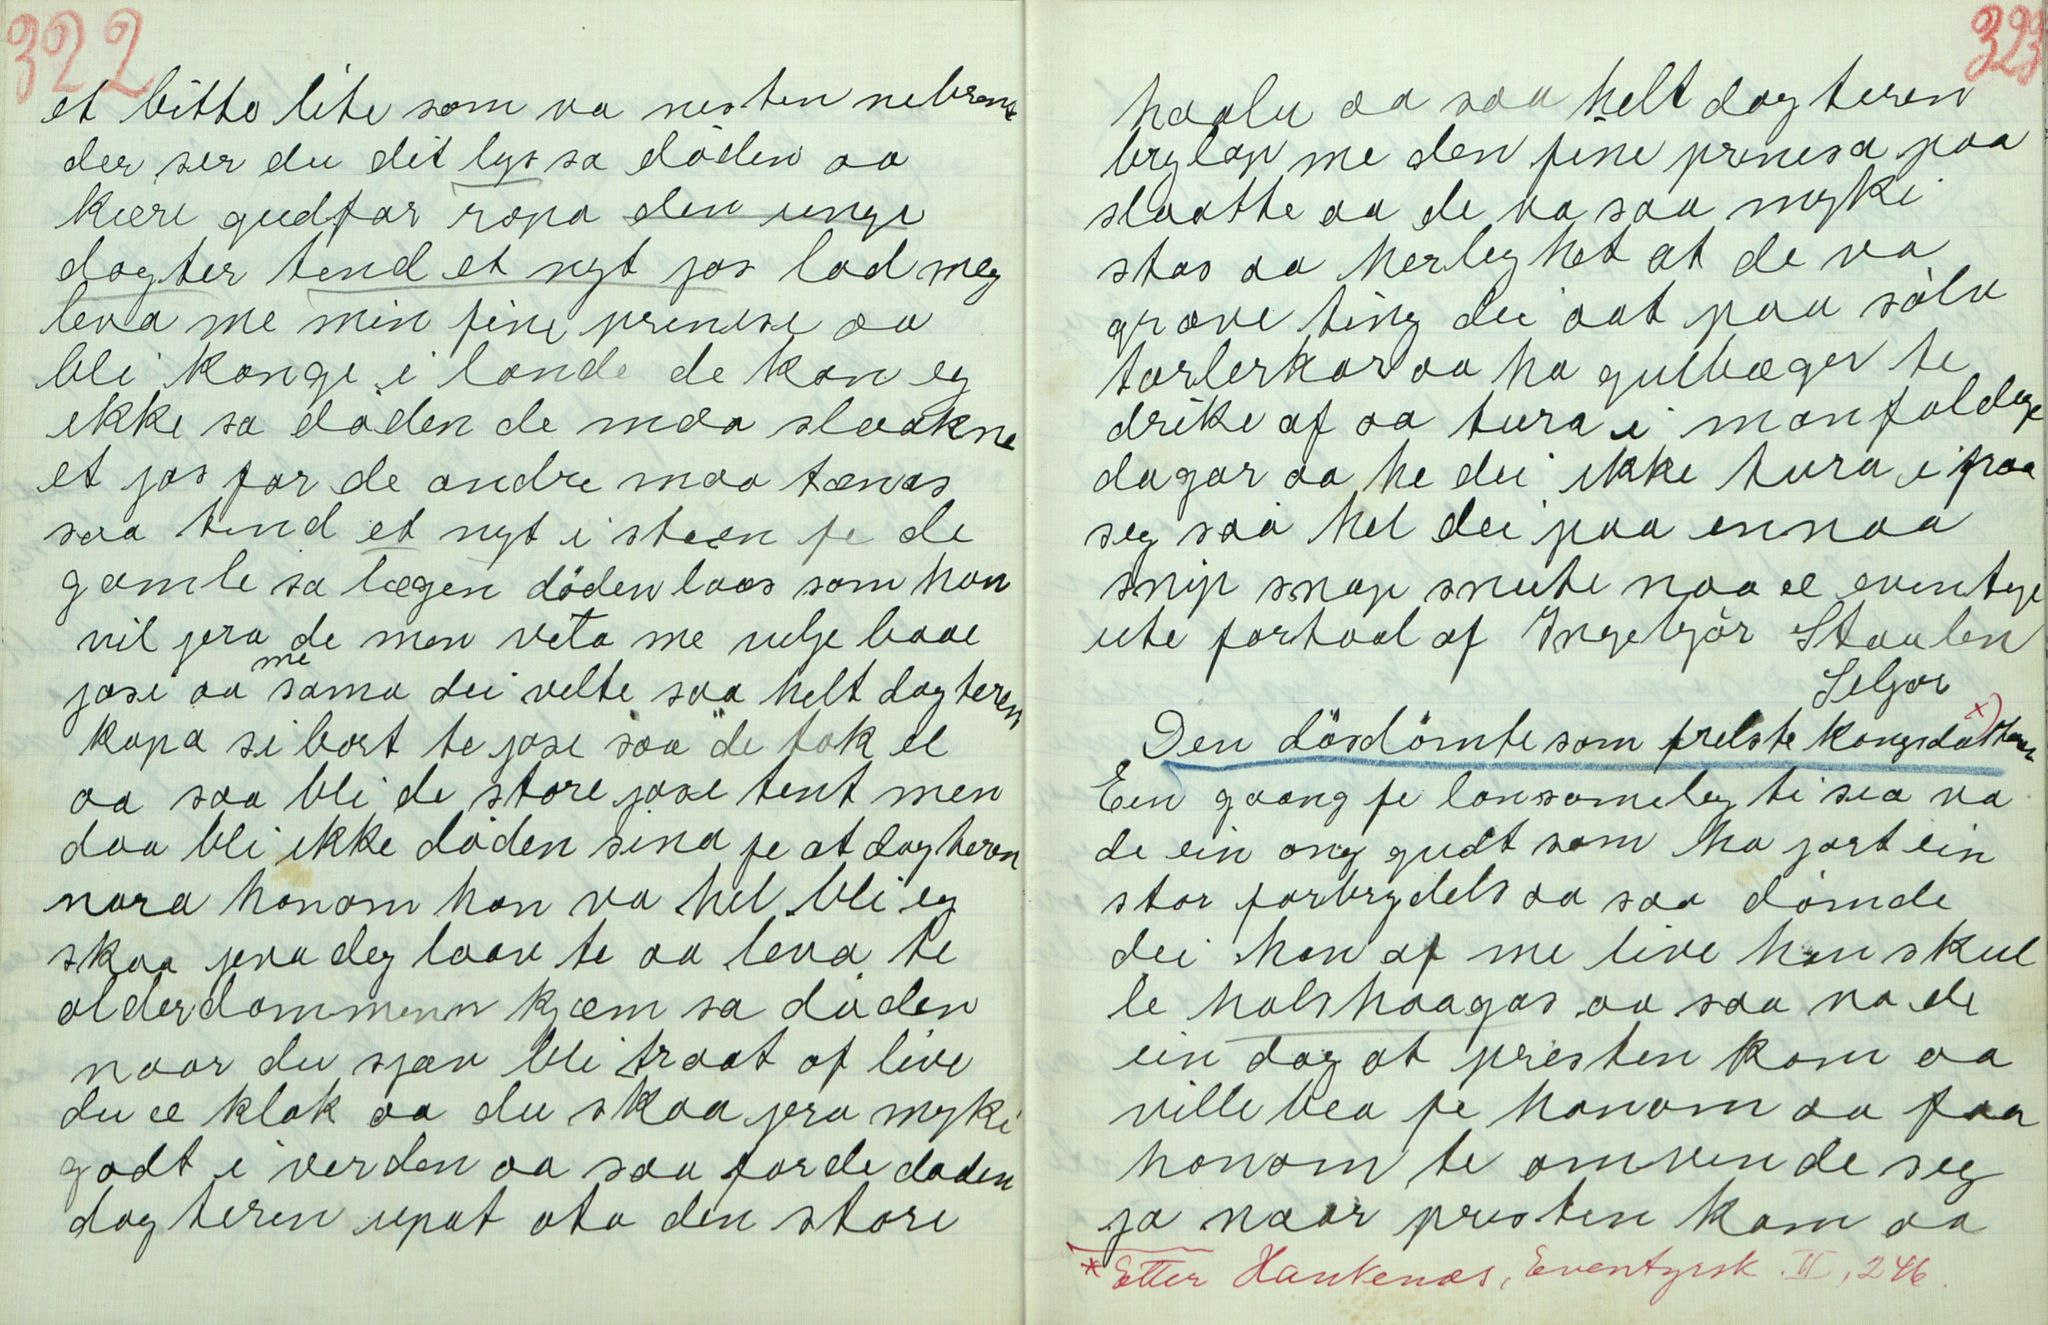 322
et bitto lite som va nesten nebrent
der ser du dit lys sa döden aa
kære gudfar ropa den unge
dogter tend et nyt jos lad meg
leva me min fine prinsese aa
bli konge i lande de kan eg
ikke sa döden de maa slaakne
et jos for de andre maa tænas
saa tend et nyt i steen fe de
gamle sa lægen döden laas som han
vil jera de men veta me vilje baae
jose aa me sama dei velte saa helt dogteren
kopa si bort te jose saa de tok el
aa saa bli de store jose tent men
daa bli ikke döden sina fe at dogteren
nara honom han va hel bli eg
skaa jeva deg laav te aa leva te
olderdommenn kjæm sa döden
naar du sjæv bli traat af live
du æ klok aa du skaa jera myki
godt i verden aa saa forde döden
dogteren upat ata den store
323
haalu aa saa helt dogteren
brylop me den fine prinsesa paa
slaatte aa de va saa myki
stas aa herleghet at de va
grove ting dei aat paa sölv
tarlerkar aa ha gulbæger te
drike af aa tura i monfoldege
dagar aa he dei ikke tura i fraa
seg saa hel dei paa ennaa
snip snap snute naa æ eventyr
ute fortaal af Ingebjör Staulen
Seljor
Den dösdömte som frelste kongsdotteren x)
Een gaang fe lonsomeleg ti sia va
de ein ong gudt som ha jort ein
stor forbrydels aa saa dömde
dei han af me live han skul
le halshaagas aa saa va de
ein dag at presten kom aa
ville bea fe honom aa faa
honom te omvende seg
ja naar presten kom aa
* Etter Hankenæs, Eventyrsk. II, 246.